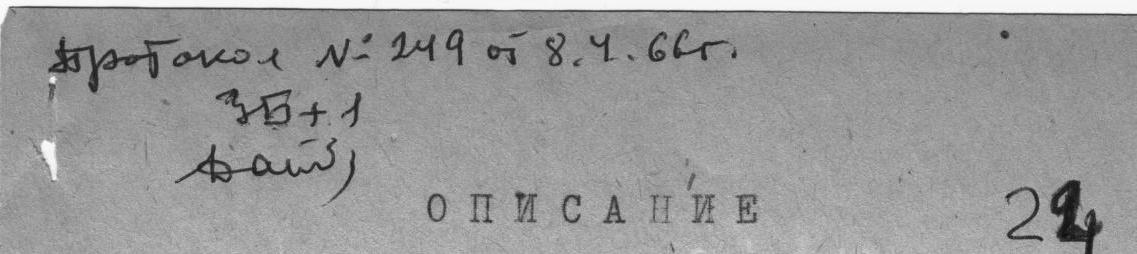 Протокол № 249 от 8.4.66г.
3Б+1
ОПИСАНИЕ